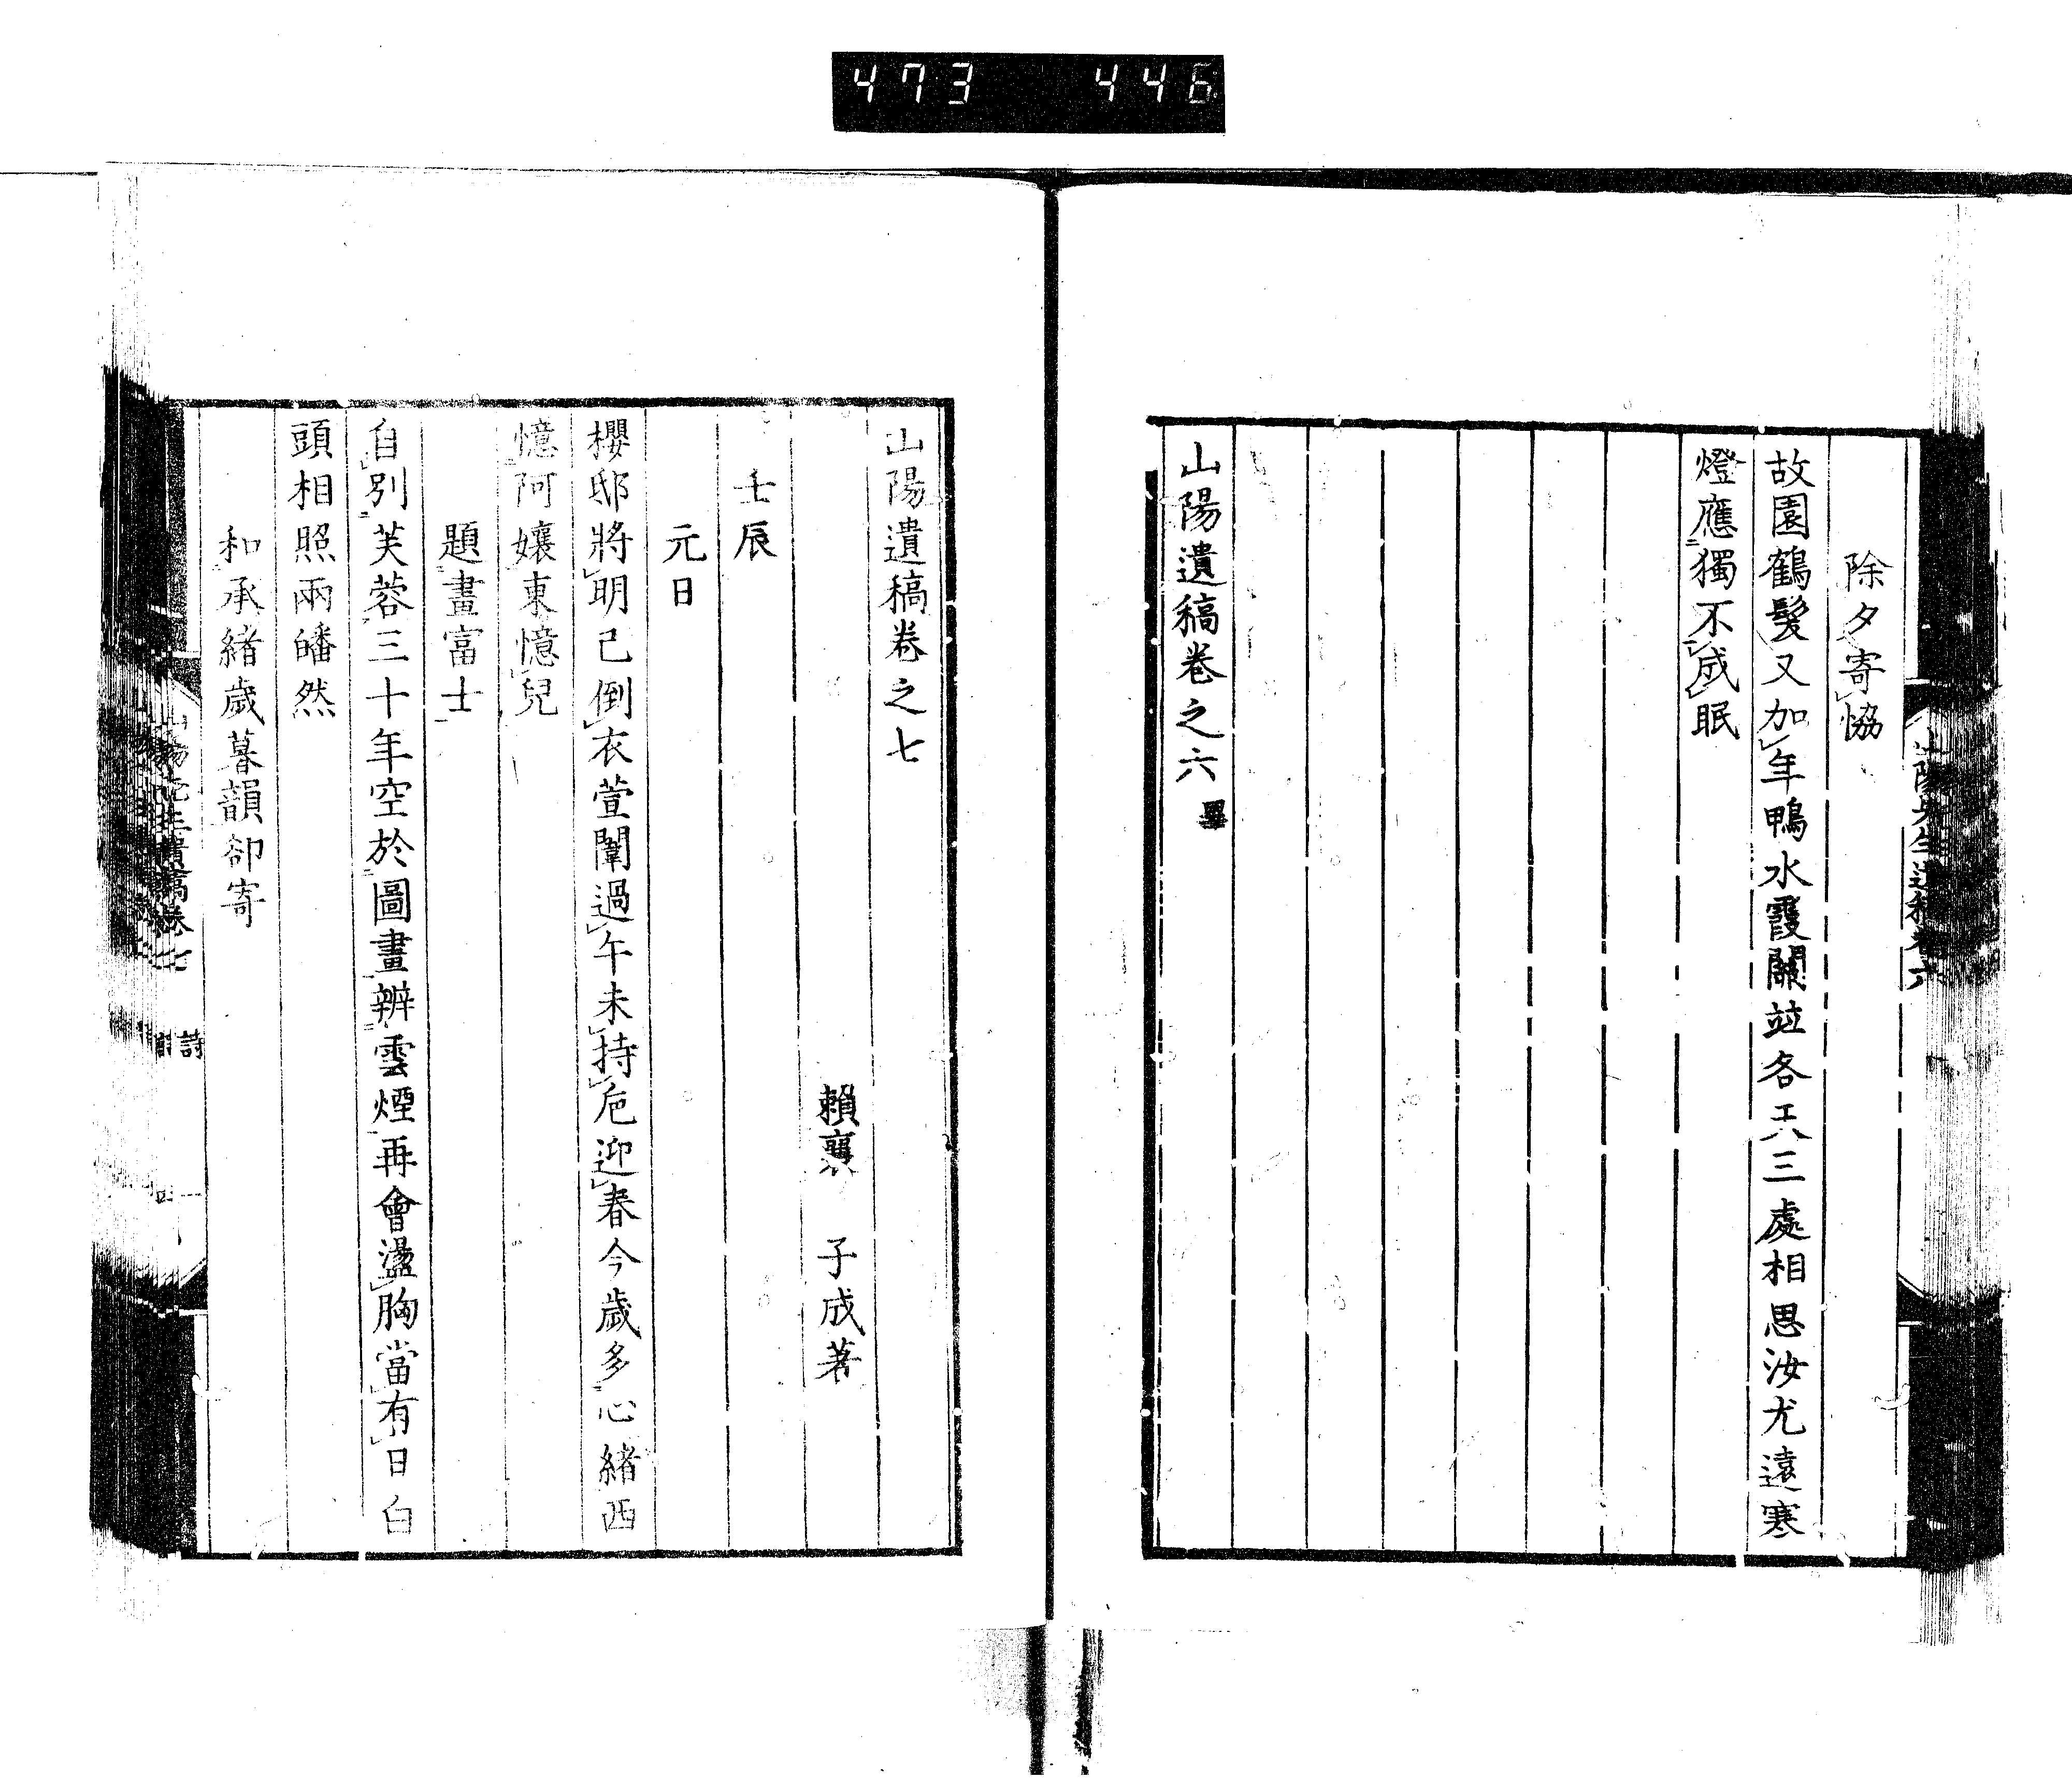 473 446
除夕寄恊
故園鶴髮又加年鴨水霞關竝各天三處相思汝尤遠寒
燈應獨不成眠
山陽遺稿卷之六 畢
山陽先生遺稿卷六
山陽遺稿卷之七
賴襄 子成著
壬辰
元日
櫻邸將明已倒衣萱闈過午未持卮迎春今歲多心緒西
憶阿孃東憶兒
題畫富士
自別芙蓉三十年空於圖畫辨雲煙再會盪胸當有日白
頭相照兩皤然
和承緒歲暮韻卻寄
山陽先生遺稿卷七
詩